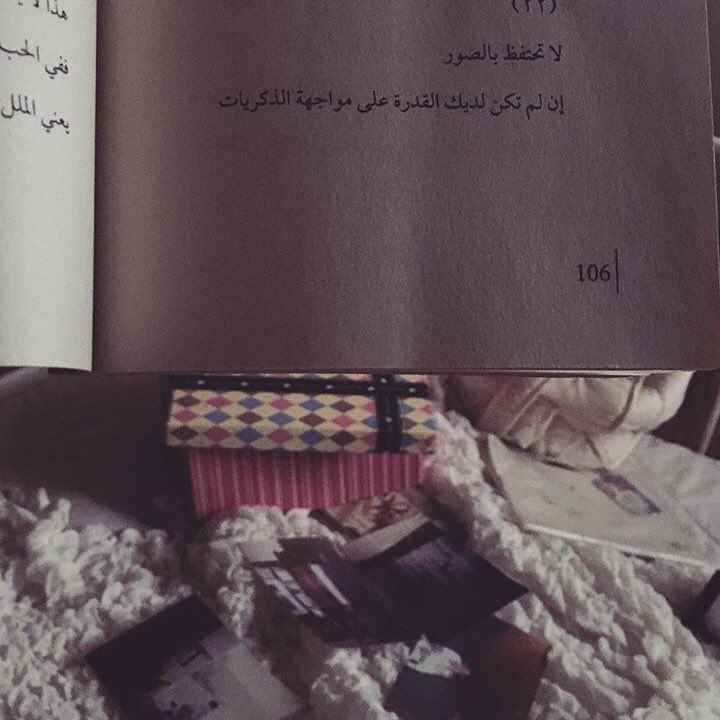 (٢٢)
لا تحتفظ بالصور
إن لم تكن لديك القدرة على مواجهة الذكريات
106
ففي الحب
يعني الملل